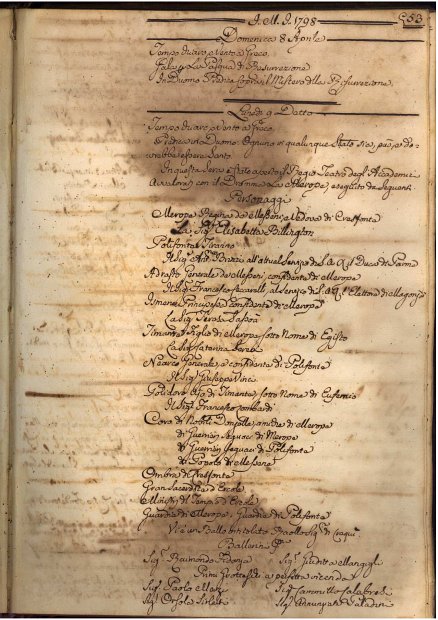 I. M. I. 1798
253
Domenica 8 Aprile
Tempo chiaro, e Vento a fresco.
La Pasqua di Resurrezione.
In Duomo Predica sopra il Mistero della Resurrezione.
Lunedì 9 Detto
Tempo chiaro, e Vento a fresco.
Predica in Duomo: Ognuno in qualunque Stato sia, può, e do-
vrebbe essere Santo.
In questa Sera è stato aperto il Regio Teatro degli Accademici
Avvalorati con il Dramma La Merope, eseguito da Seguenti
Personaggi
Merope Regina di Messenia, e Vedova di Cresfonte
La Sig.ra Elisabetta Billington
Polifonte Tiranno
Il Sig.r all'attual Servizio di S. A. R. il Duca di Parma
Adrasto Generale di Messeni, confidente di Merope
Il Sig.r Francesco Ceccarelli al Servizio di S. A. El. Elettore di Magonza
Ismene Principessa Confidente di Merope
La Sig.ra Teresa
Timante Figlio di Merope sotto Nome di Egisto
La Sig.ra
Nearco Generale, e confidente di Polifonte
Il Sig.r Giuseppe
Polidoro Ajo di Timante, sotto Nome di Eufemio
Il Sig.r Francesco Lombardi
Coro di Nobili Donzelle, amiche di Merope
di Guerrieri Seguaci di Merope
di Guerrieri Seguaci di Polifonte
di Popolo di Messene
Ombra di Cresfonte
Gran Sacerdote d'Ercole
Ministri del Tempio d'Ercole
Guardie di Merope. Guardie di Polifonte
Vi è un Ballo intitolato
Ballerini
Sig.r Raimondo Sig.ra Giuditta
Primi Grotteschi a perfetta vicenda
Sig.r Paolo Sig.r Cammillo Calabresi
Sig.ra Orsola Sig.ra Annunziata Valadini